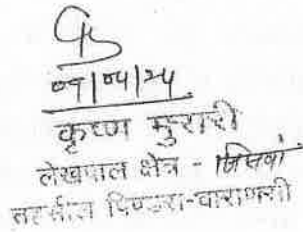 09/04/24
कृष्ण मुरारी
लेखपाल क्षेत्र -
तहसील पिण्डरा-वाराणसी